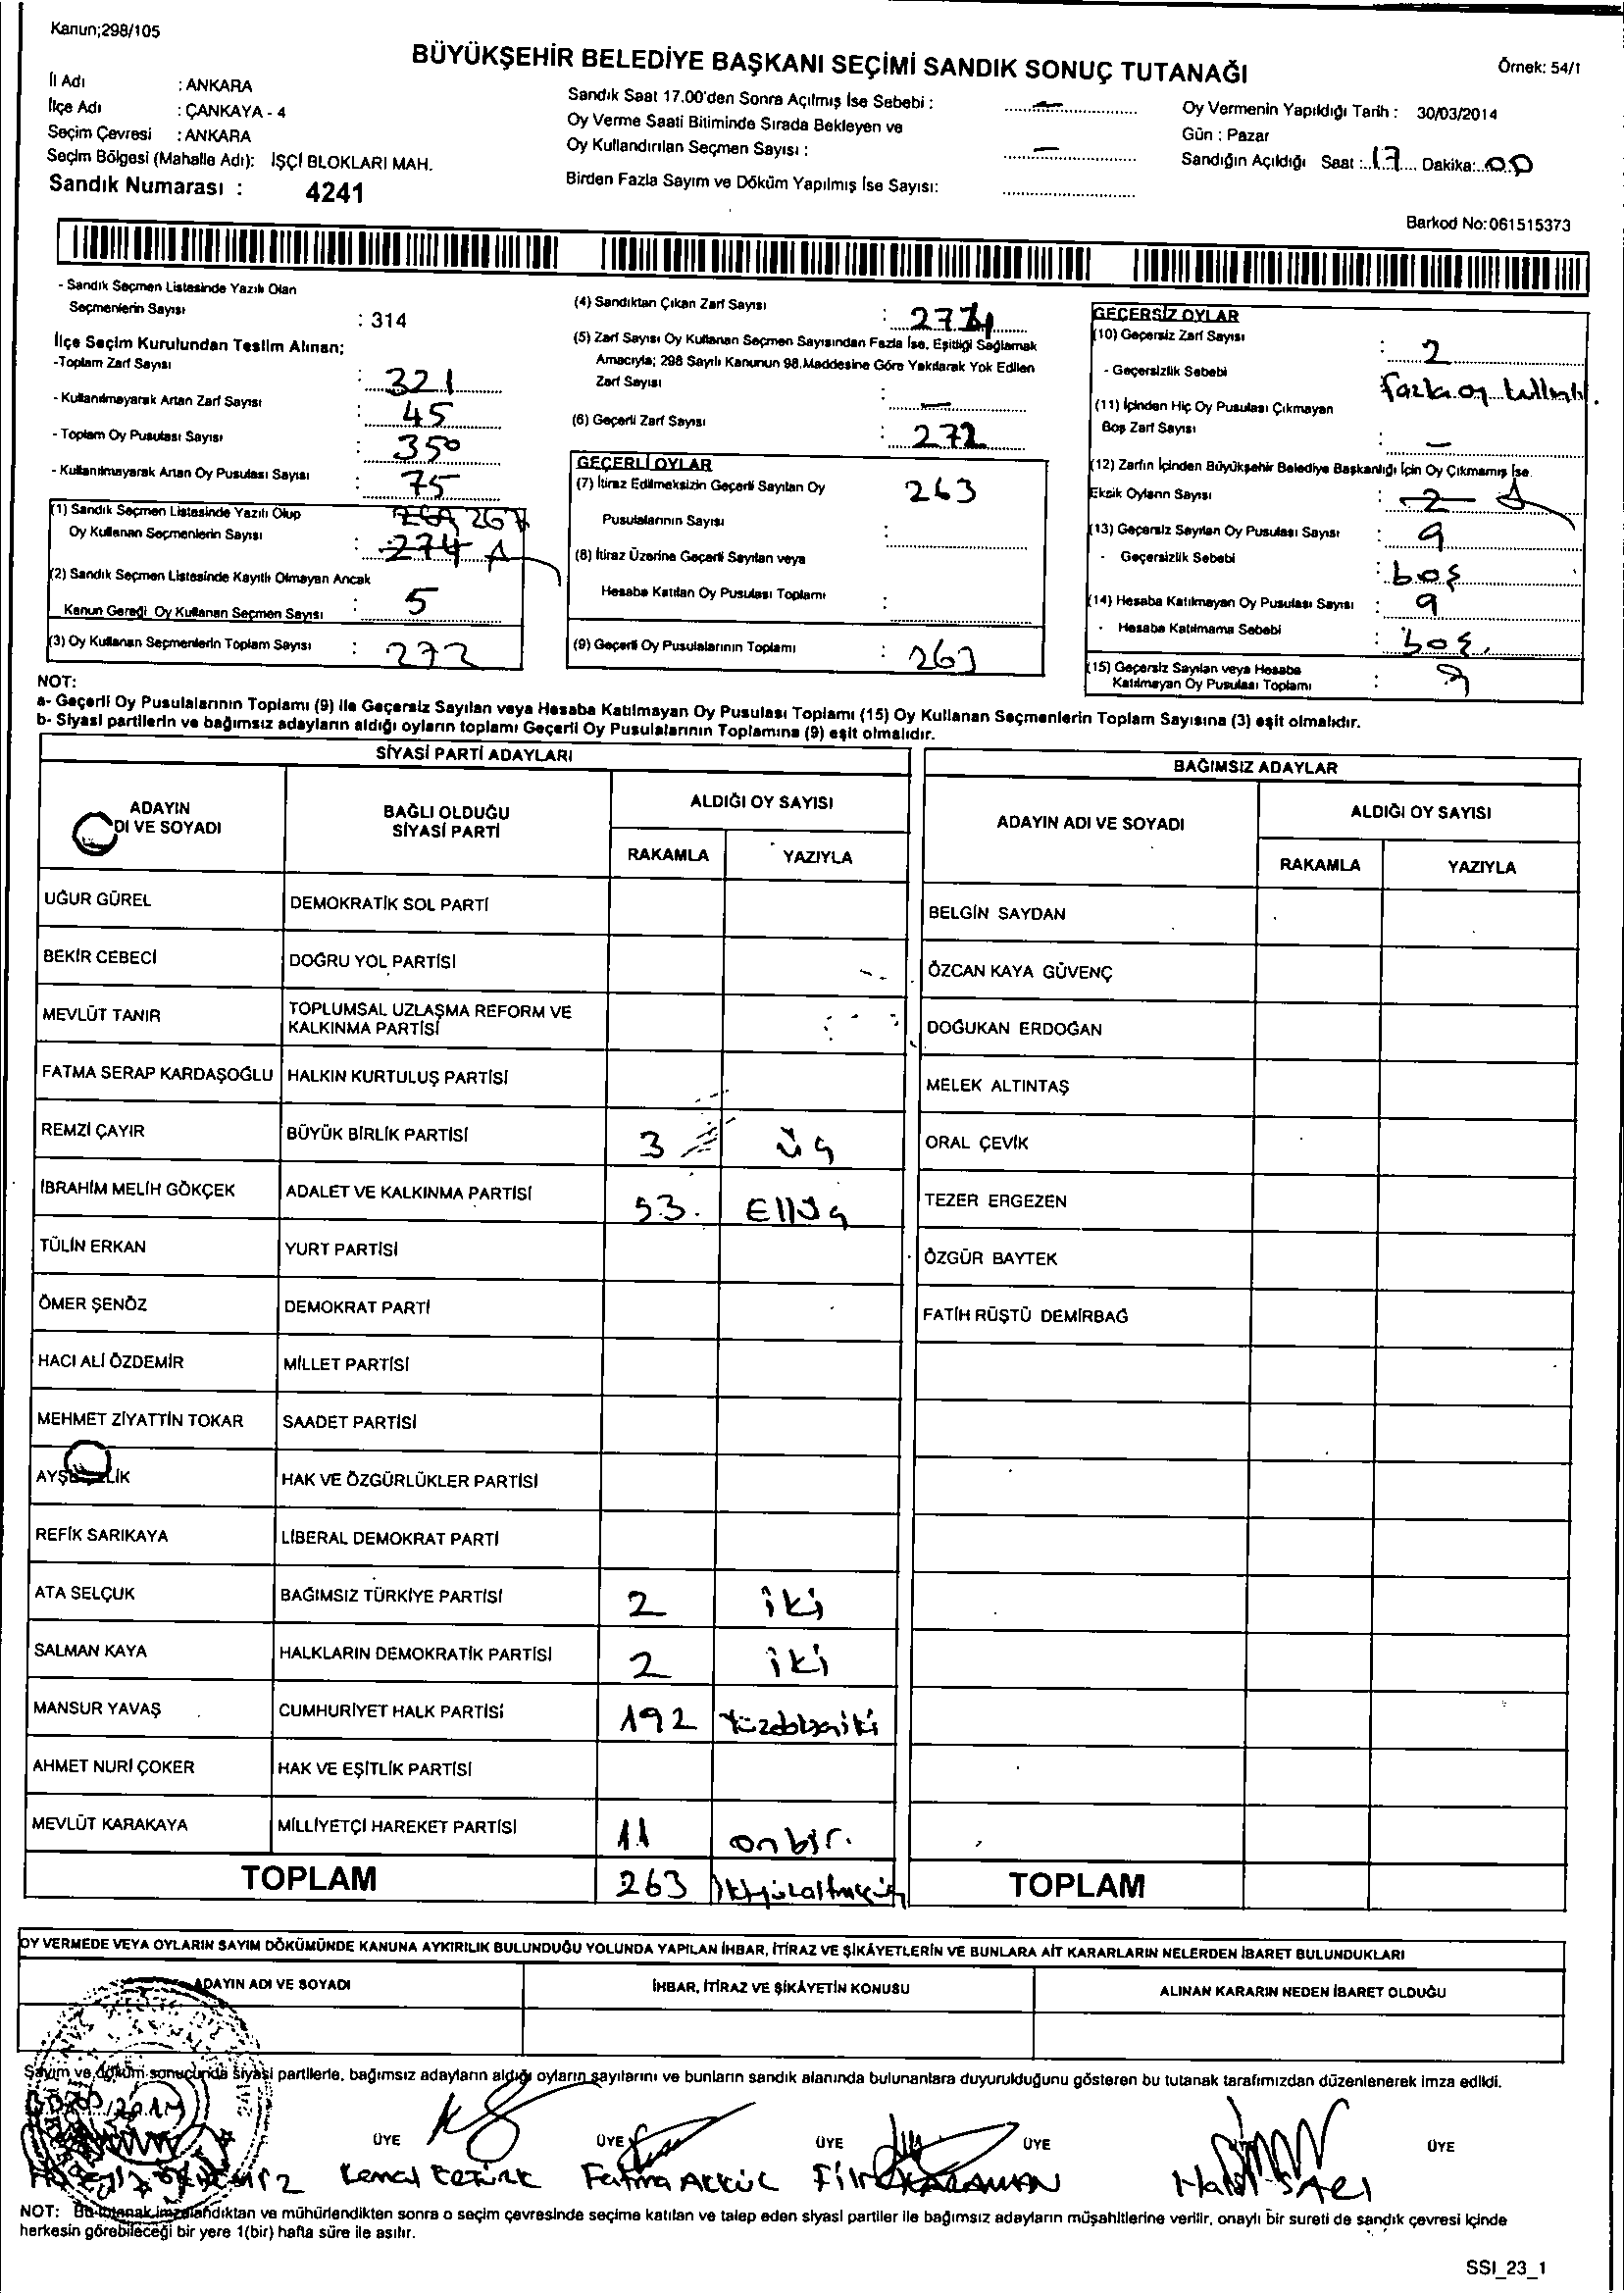 Kanun;298/105
BÜYÜKŞEHİR BELEDİYE BAŞKANI SEÇİMİ SANDIK SONUÇ TUTANAĞI
Örnek: 54/1
İl Adı : ANKARA
İlçe Adı : ÇANKAYA - 4
Seçim Çevresi : ANKARA
Seçim Bölgesi (Mahalle Adı): İŞÇİ BLOKLARI MAH.
Sandık Numarası : 4241
Sandık Saat 17.00'den Sonra Açılmış İse Sebebi : –
Oy Verme Saati Bitiminde Sırada Bekleyen ve
Oy Kullandırılan Seçmen Sayısı : –
Birden Fazla Sayım ve Döküm Yapılmış İse Sayısı:
Oy Vermenin Yapıldığı Tarih : 30/03/2014
Gün : Pazar
Sandığın Açıldığı Saat : 17 Dakika: 00
Barkod No:061515373
- Sandık Seçmen Listesinde Yazılı Olan
Seçmenlerin Sayısı : 314
İlçe Seçim Kurulundan Teslim Alınan;
-Toplam Zarf Sayısı : 321
- Kullanılmayarak Artan Zarf Sayısı : 45
- Toplam Oy Pusulası Sayısı : 350
- Kullanılmayarak Artan Oy Pusulası Sayısı : 75
(1) Sandık Seçmen Listesinde Yazılı Olup 267
Oy Kullanan Seçmenlerin Sayısı : 274
(2) Sandık Seçmen Listesinde Kayıtlı Olmayan Ancak
Kanun Gereği Oy Kullanan Seçmen Sayısı : 5
(3) Oy Kullanan Seçmenlerin Toplam Sayısı : 272
(4) Sandıktan Çıkan Zarf Sayısı :
(5) Zarf Sayısı Oy Kullanan Seçmen Sayısından Fazla İse, Eşitliği Sağlamak
Amacıyla; 298 Sayılı Kanunun 98.Maddesine Göre Yakılarak Yok Edilen
Zarf Sayısı : –
(6) Geçerli Zarf Sayısı : 272
GEÇERLİ OYLAR
(7) İtiraz Edilmeksizin Geçerli Sayılan Oy 263
Pusulalarının Sayısı :
(8) İtiraz Üzerine Geçerli Sayılan veya
Hesaba Katılan Oy Pusulası Toplamı :
(9) Geçerli Oy Pusulalarının Toplamı : 263
GEÇERSİZ OYLAR
(10) Geçersiz Zarf Sayısı : 2
- Geçersizlik Sebebi fazla oy
(11) İçinden Hiç Oy Pusulası Çıkmayan
Boş Zarf Sayısı : –
(12) Zarfın İçinden Büyükşehir Belediye Başkanlığı İçin Oy Çıkmamış İse
Eksik Oyların Sayısı : 2
(13) Geçersiz Sayılan Oy Pusulası Sayısı : 9
- Geçersizlik Sebebi : boş
(14) Hesaba Katılmayan Oy Pusulası Sayısı : 9
- Hesaba Katılmama Sebebi : boş.
(15) Geçersiz Sayılan veya Hesaba
Katılmayan Oy Pusulası Toplamı : 9
NOT:
a- Geçerli Oy Pusulalarının Toplamı (9) ile Geçersiz Sayılan veya Hesaba Katılmayan Oy Pusulası Toplamı (15) Oy Kullanan Seçmenlerin Toplam Sayısına (3) eşit olmalıdır.
b- Siyasi partilerin ve bağımsız adayların aldığı oyların toplamı Geçerli Oy Pusulalarının Toplamına (9) eşit olmalıdır.
SİYASİ PARTİ ADAYLARI
ADAYIN DI VE SOYADI
BAĞLI OLDUĞU SİYASİ PARTİ
ALDIĞI OY SAYISI
RAKAMLA YAZIYLA
UĞUR GÜREL DEMOKRATİK SOL PARTİ
BEKİR CEBECİ DOĞRU YOL PARTİSİ
MEVLÜT TANIR TOPLUMSAL UZLAŞMA REFORM VE
KALKINMA PARTİSİ
FATMA SERAP KARDAŞOĞLU HALKIN KURTULUŞ PARTİSİ
REMZİ ÇAYIR BÜYÜK BİRLİK PARTİSİ 3 üç
İBRAHİM MELİH GÖKÇEK ADALET VE KALKINMA PARTİSİ 53. Ellüç
TÜLİN ERKAN YURT PARTİSİ
ÖMER ŞENÖZ DEMOKRAT PARTİ
HACI ALİ ÖZDEMİR MİLLET PARTİSİ
MEHMET ZİYATTİN TOKAR SAADET PARTİSİ
HAK VE ÖZGÜRLÜKLER PARTİSİ
REFİK SARIKAYA LİBERAL DEMOKRAT PARTİ
ATA SELÇUK BAĞIMSIZ TÜRKİYE PARTİSİ 2 iki
SALMAN KAYA HALKLARIN DEMOKRATİK PARTİSİ 2 iki
MANSUR YAVAŞ CUMHURİYET HALK PARTİSİ 192
AHMET NURİ ÇOKER HAK VE EŞİTLİK PARTİSİ
MEVLÜT KARAKAYA MİLLİYETÇİ HAREKET PARTİSİ 11 onbir.
TOPLAM 263
BAĞIMSIZ ADAYLAR
ADAYIN ADI VE SOYADI
ALDIĞI OY SAYISI
RAKAMLA YAZIYLA
BELGİN SAYDAN
ÖZCAN KAYA GÜVENÇ
DOĞUKAN ERDOĞAN
MELEK ALTINTAŞ
ORAL ÇEVİK
TEZER ERGEZEN
ÖZGÜR BAYTEK
FATİH RÜŞTÜ DEMİRBAĞ
TOPLAM
OY VERMEDE VEYA OYLARIN SAYIM DÖKÜMÜNDE KANUNA AYKIRILIK BULUNDUĞU YOLUNDA YAPILAN İHBAR, İTİRAZ VE ŞİKÂYETLERİN VE BUNLARA AİT KARARLARIN NELERDEN İBARET BULUNDUKLARI
ADAYIN ADI VE SOYADI
İHBAR, İTİRAZ VE ŞİKÂYETİN KONUSU
ALINAN KARARIN NEDEN İBARET OLDUĞU
Sayım ve döküm sonucunda siyasi partilerle, bağımsız adayların aldığı oyların sayılarını ve bunların sandık alanında bulunanlara duyurulduğunu gösteren bu tutanak tarafımızdan düzenlenerek imza edildi.
ÜYE ÜYE ÜYE ÜYE ÜYE
Kemal Fatma AKKÜL KARAMAN Halil SARI
NOT: Bu tutanak imzalandıktan ve mühürlendikten sonra o seçim çevresinde seçime katılan ve talep eden siyasi partiler ile bağımsız adayların müşahitlerine verilir, onaylı bir sureti de sandık çevresi içinde
herkesin görebileceği bir yere 1(bir) hafta süre ile asılır.
SSI_23_1